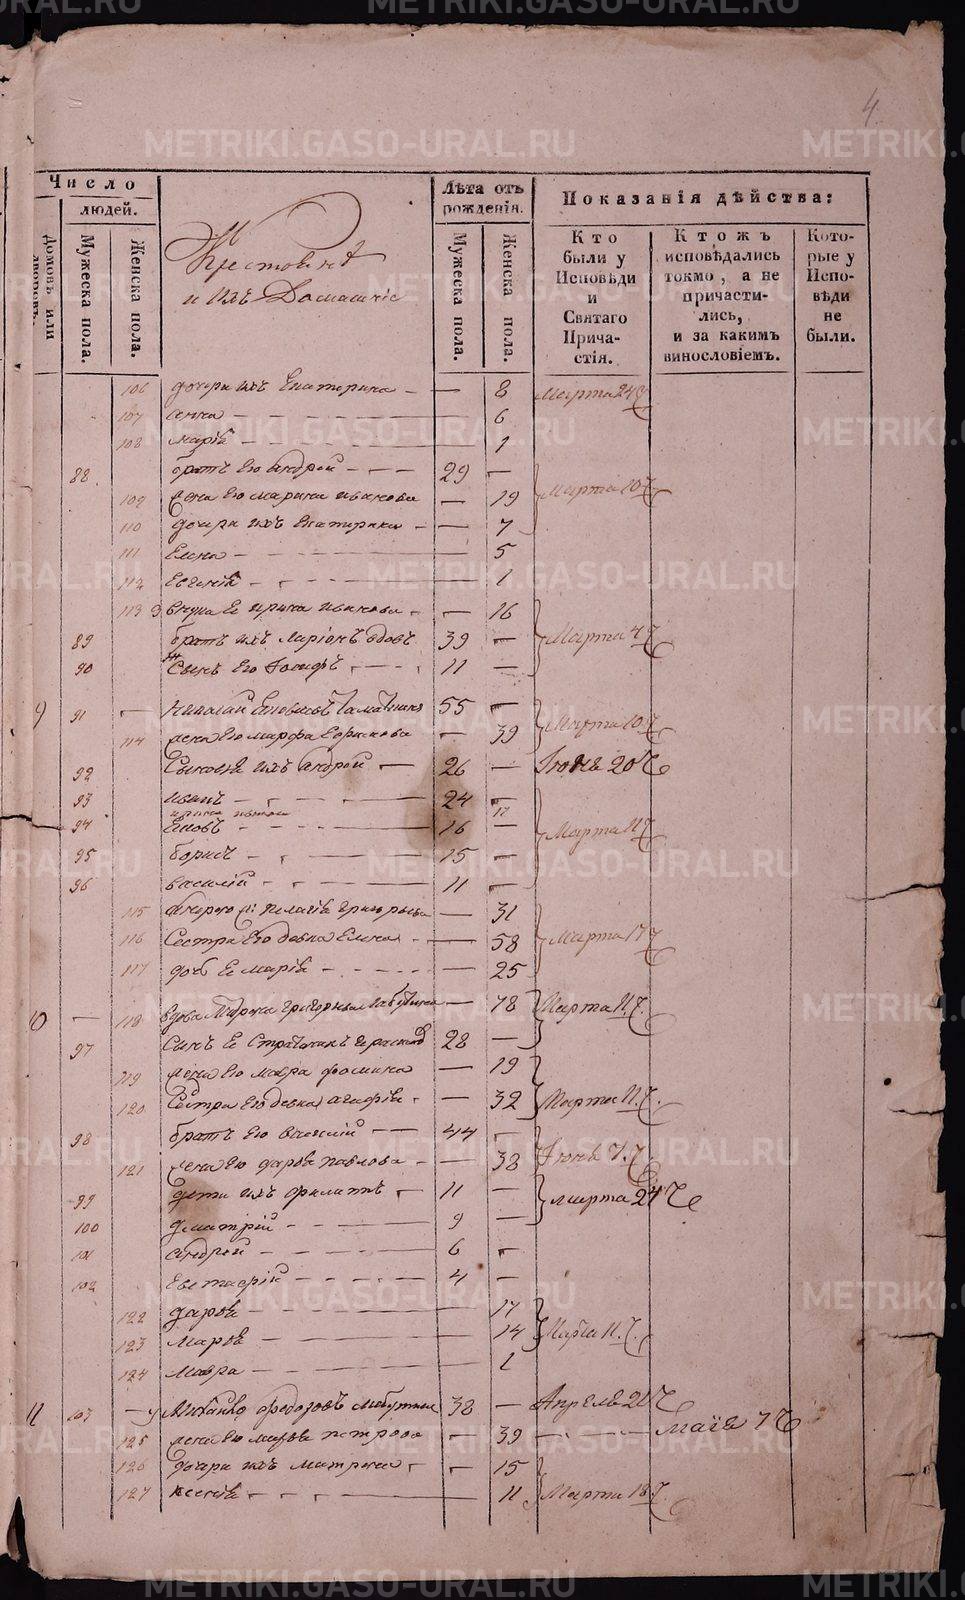 4.
Число
людей.
Домовъ или дворовъ.
Мужеска пола.
Женска пола.
Крестьянѣ
и ихъ Домашніе
Лѣта отъ рожденія.
Мужеска пола.
Женска пола.
Показанія дѣйства:
Кто были у Исповѣди и Святаго Причастія.
Ктожъ исповѣдались токмо, а не причастились, и за какимъ винословіемъ.
Которые у Исповѣди не были.
106 дочери ихъ Екатерина — 8 Марта 24 Ч
107 Анна — 6
108 Марія — 1
88 братъ его Андрей — 29 —
109 жена его Марина Иванова — 19 Марта 10 Ч
110 дочери ихъ Екатерина — 7
111 Елена — 5
112 Евгенія — 1
113 внука ее Ирина Иванова — 16
89 братъ ихъ Ларіонъ вдовъ 39 — Марта 4 Ч
90 Сынъ его Іосифъ 11 —
9 91 Николай 55 —
114 жена его Марфа Борисова — 39 Марта 10 Ч
92 Сыновья ихъ Андрей — 26 — Іюня 20 Ч
93 Иванъ — 24 —
17
94 Яковъ — 16 — Марта 11 Ч
95 Борисъ — 15 —
96 Василій — 11 —
115 Пелагія Григорьева — 31
116 Сестра его девка Елена — 58 Марта 17 Ч
117 дочь ее Марія — 25
10 — 118 вдова Григорьева — 78 Марта 11 Ч.
97 Сынъ ее 28 —
119 жена его Мавра Фомина — 19
120 Сестра его девка Агафія — 32 Марта 11 Ч.
98 братъ его Василій — 44 —
121 жена его Дарья Павлова — 38 Іюня 7 Ч
99 дети ихъ Филипъ 11 — Марта 24 Ч
100 Дмитрій — 9 —
101 Андрей — 6 —
102 Евстафій — 4 —
122 Дарья — 17
123 Марѳа — 14 Марта 11 Ч.
124 Мавра — 1
11 103 Михайло Федоровъ 38 — Апреля 21 Ч
125 жена его Петрова — 39 — Маія 7 Ч
126 дочери ихъ Матрена — 15
127 Ксенія — 11 Марта 18 Ч
METRIKI.GASO-URAL.RU